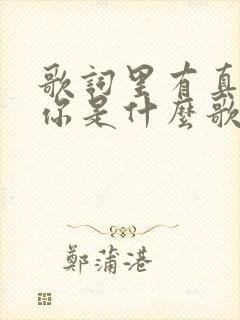 歌詞里有真
你是什麽歌
鄭蒲港